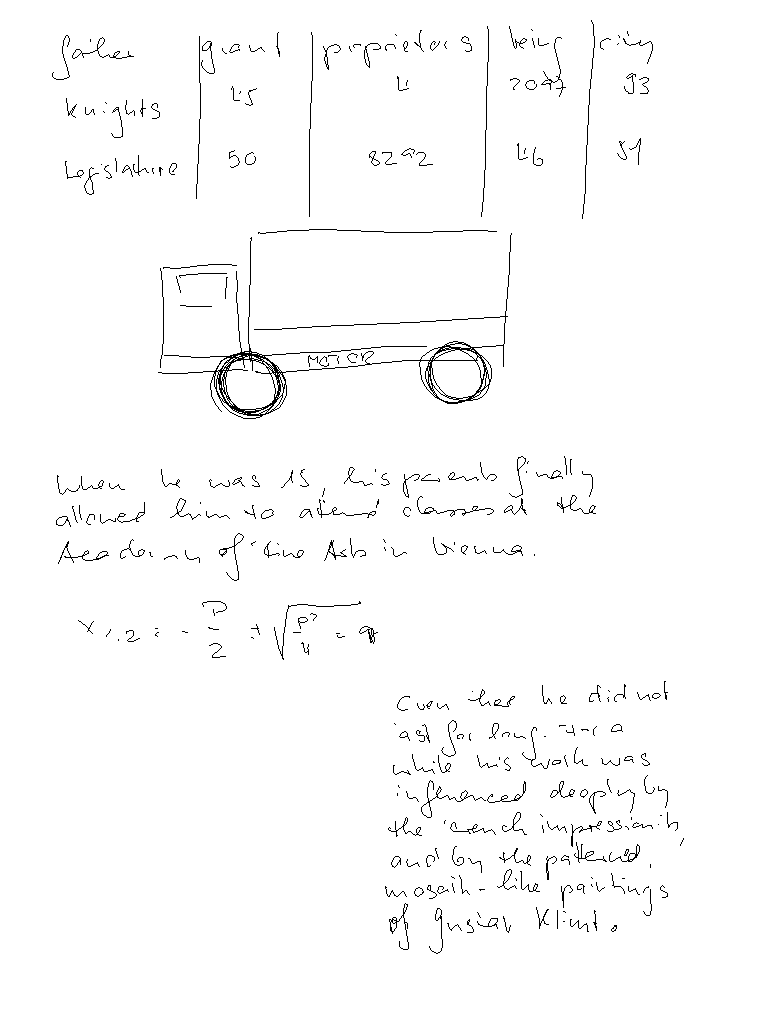 father grant proprietors being city
Knights 45 4 2097 93
Legislature 50 8292 46 51
MOTOR
When he was 15, his parents finally
allowed him to attend classes at the
Academy of Fine Arts in Vienna.
x1,2 = - P/2 ± √(P²/4 - q)
Even here he did not
last for long. For a
while his work was
influenced deeply by
the French impressionists,
and by the patterned,
mosaik-like paintings
of Gustav Klimt.